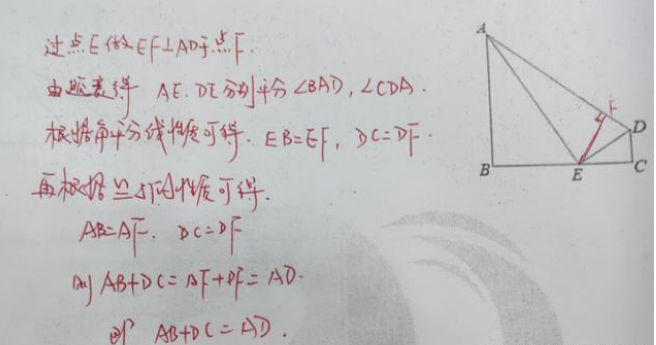 过点E做EF⊥AD于点F.
由题意得 AE、DE分别平分∠BAD,∠CDA.
根据角平分线性质可得. EB=EF, DC=DF.
再根据 三 的性质可得.
AB=AF. DC=DF
则 AB+DC=AF+DF=AD.
即 AB+DC=AD.
A
F
D
B
E
C